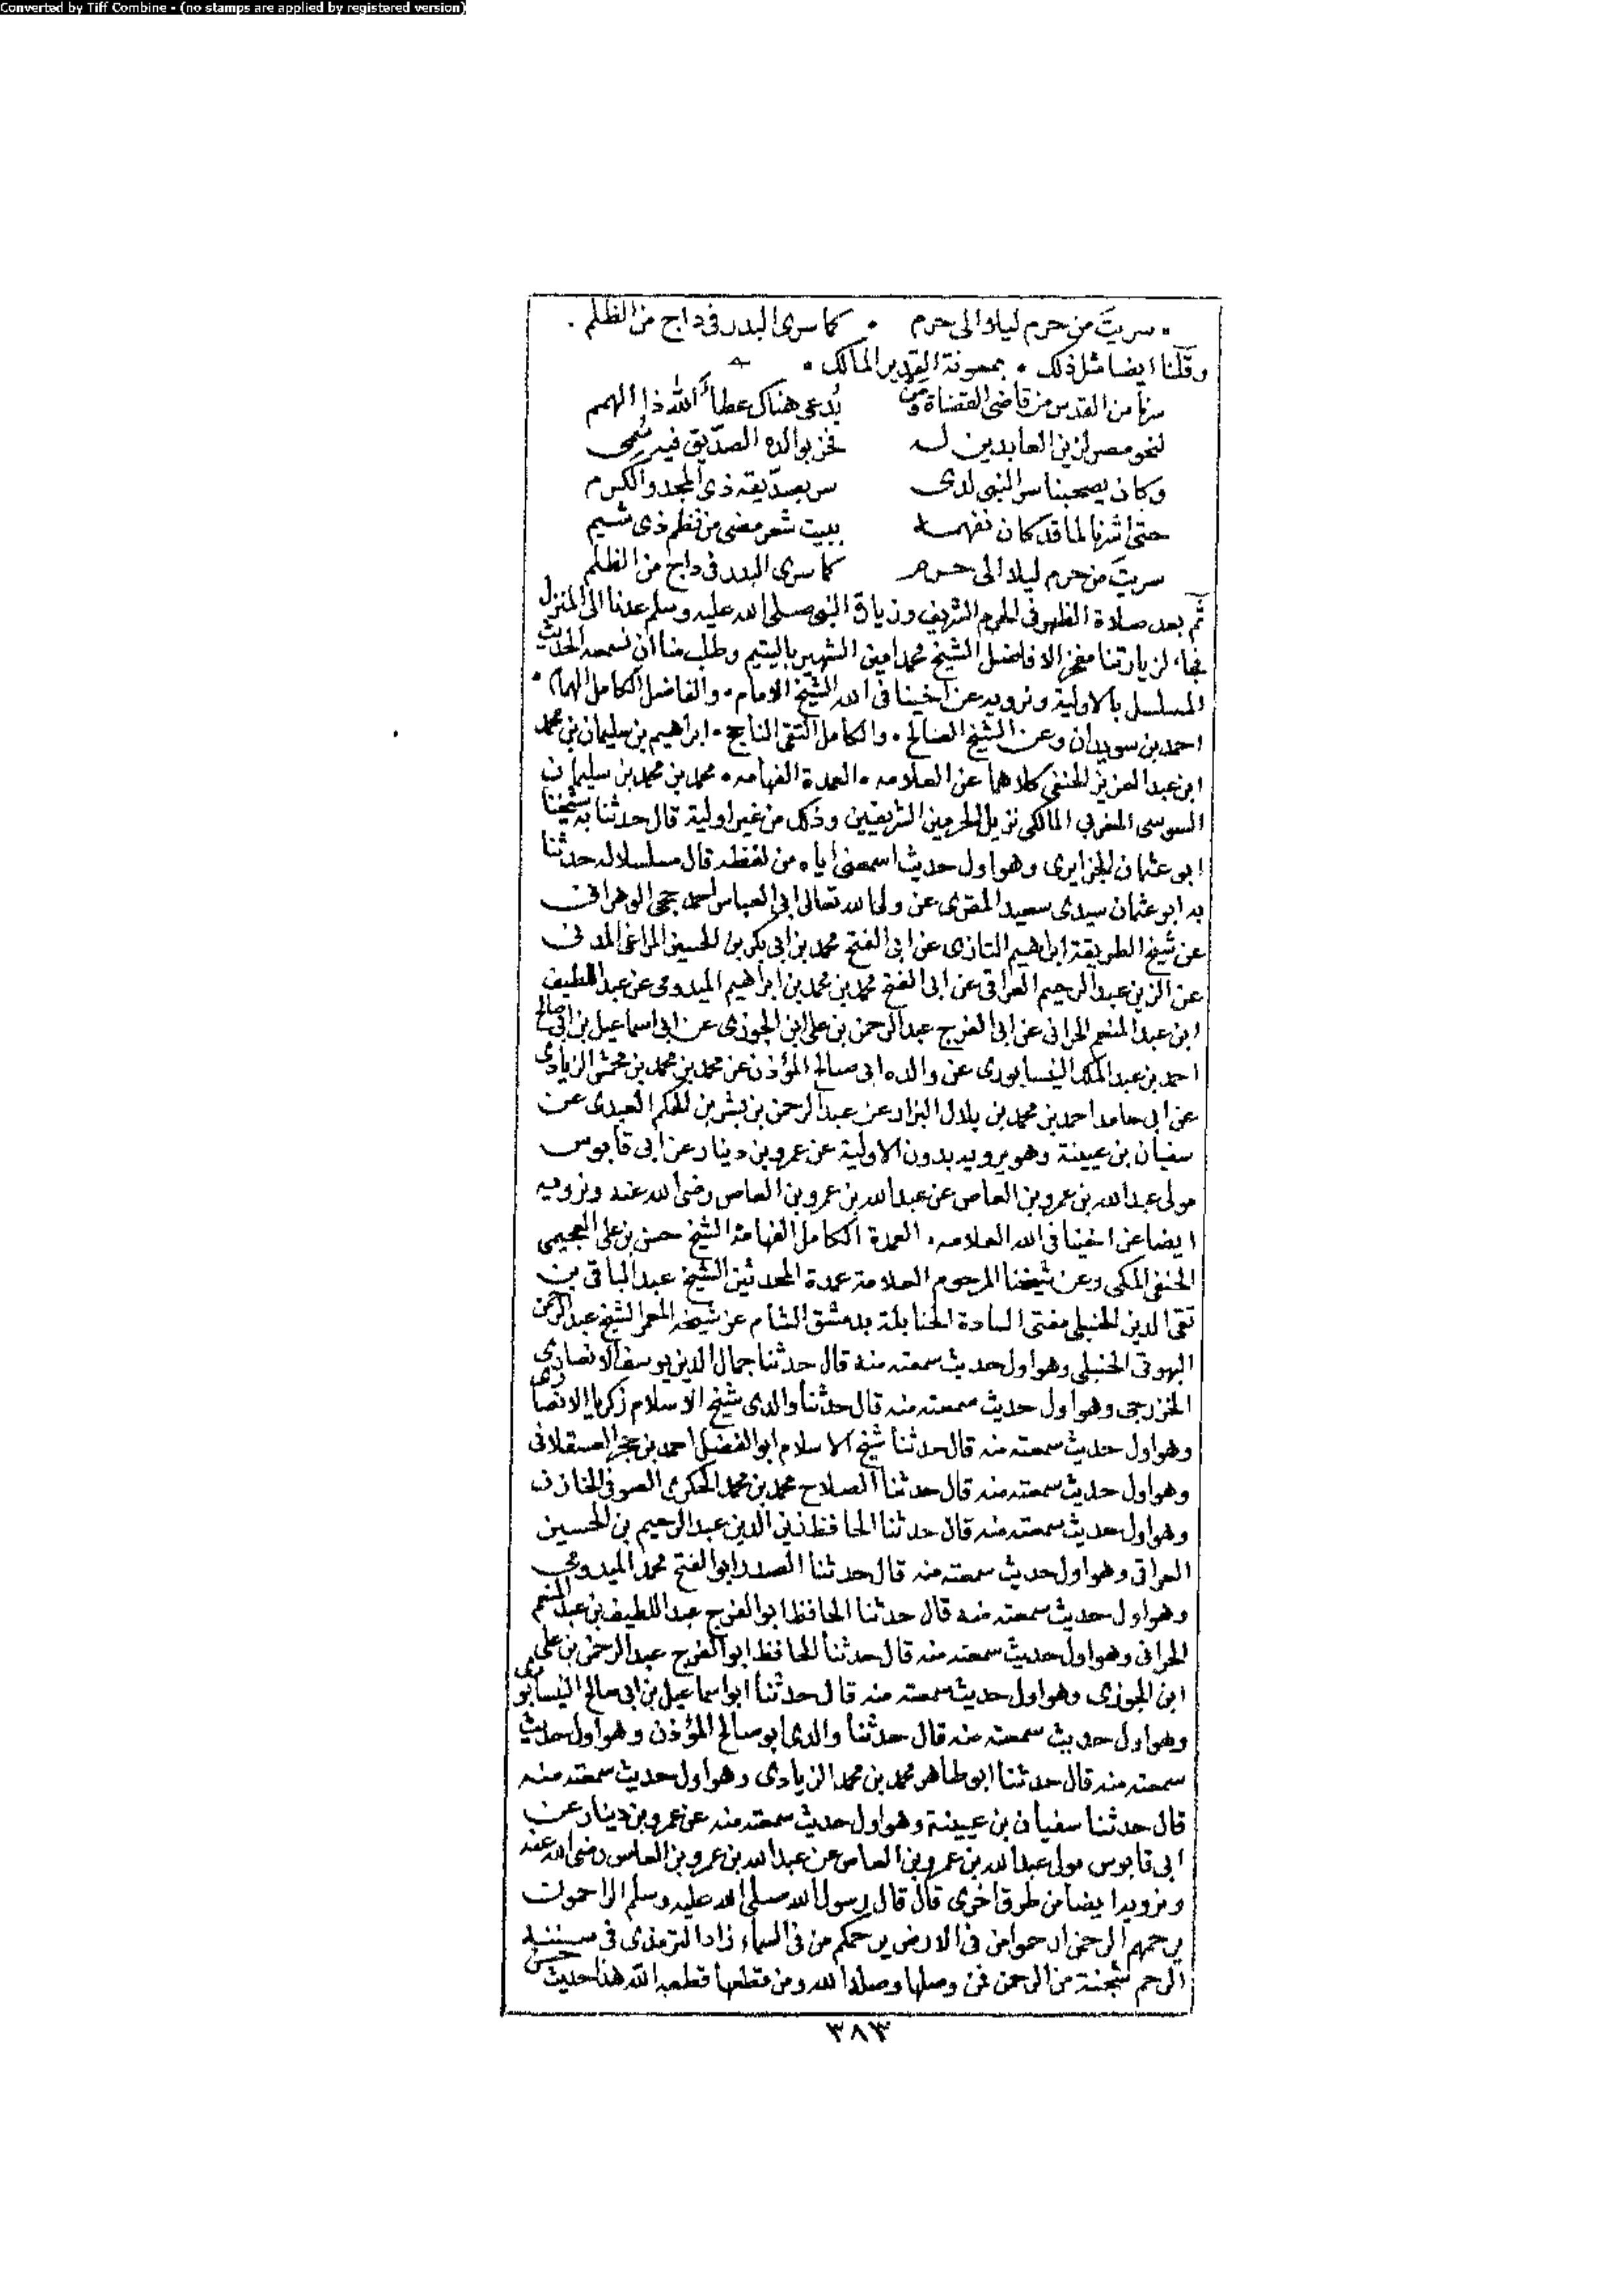 Converted by Tiff Combine - (no stamps are applied by registered version)
• سريتَ من حرم ليلا الى حرم • كما سرى البدر فى داج من الظلم •
وقلنا ايضا مثل ذلك • بمعونة القدير المالك •
سرنا من القدس من قاضى القضاة ومن يُدعى هناك عطاء الله ذا الهمم
لنحو مصر لزين العابدين له فخر بوالده الصدّيق فيه سُمى
وكان يصحبنا سر النبى لدى سر بصدّيقه ذى المجد والكرم
حتى اشرنا لما قد كان نفهمه ببيت شعر مضى من نظم ذى شيم
سريتَ من حرم ليلا الى حرم كما سرى البدر فى داج من الظلم
ثم بعد صلاة الظهر فى الحرم الشريف وزيارة النبى صلى الله عليه وسلم عدنا الى المنزل
فجاء لزيارتنا مفخر الافاضل الشيخ محمد امين الشهير باليتيم وطلب منا ان نسمعه الحديث
المسلسل بالاولية ونرويه عن اخينا فى الله الشيخ الامام • والفاضل الكامل الهمام •
احمد بن سويدان وعن الشيخ الصالح • والكامل التقى الناجح • ابراهيم بن سليمان بن محمد
ابن عبد العزيز الحنفى كلاهما عن العلامه • العمدة الفهامه • محمد بن محمد بن سليمان
السوسى المغربى المالكى نزيل الحرمين الشريفين وذلك من غير اولية قال حدثنا به شيخنا
ابو عثمان الجزايرى وهو اول حديث اسمعنى اياه من لفظه قال مسلسلا له حدثنا
به ابو عثمان سيدى سعيد المقرى عن ولى الله تعالى ابى العباس احمد حجى الوهرانى
عن شيخ الطريقة ابراهيم التازى عن ابى الفتح محمد بن ابى بكر بن الحسين المراغى المدنى
عن الزين عبد الرحيم العراقى عن ابى الفتح محمد بن محمد بن ابراهيم الميدومى عن عبد اللطيف
ابن عبد المنعم الحرانى عن ابى الفرج عبد الرحمن بن على ابن الجوزى عن ابى اسماعيل بن ابى صالح
احمد بن عبد الملك النيسابورى عن والده ابى صالح المؤذن عن محمد بن محمد بن محمش الزيادى
عن ابى حامد احمد بن محمد بن بلال البزار عن عبد الرحمن بن بشر بن الحكم العبدى عن
سفيان بن عيينة وهو يرويه بدون الاولية عن عمرو بن دينار عن ابى قابوس
مولى عبد الله بن عمرو بن العاص عن عبد الله بن عمرو بن العاص رضى الله عنه ونرويه
ايضا عن اخينا فى الله العلامه • العمدة الكامل الفهامة الشيخ حسن بن على العجيمى
الحنفى المكى وعن شيخنا المرحوم العلامة عمدة المحدثين الشيخ عبد الباقى بن
تقى الدين الحنبلى مفتى السادة الحنابلة بدمشق الشام عن شيخه المعمر الشيخ عبد الرحمن
البهوتى الحنبلى وهو اول حديث سمعته منه قال حدثنا جمال الدين يوسف الانصارى
الخزرجى وهو اول حديث سمعته منه قال حدثنا والدى شيخ الاسلام زكريا الانصارى
وهو اول حديث سمعته منه قال حدثنا شيخ الاسلام ابو الفضل احمد بن حجر العسقلانى
وهو اول حديث سمعته منه قال حدثنا الصلاح محمد بن محمد الحكرى الصوفى الخازن
وهو اول حديث سمعته منه قال حدثنا الحافظ زين الدين عبد الرحيم بن الحسين
العراقى وهو اول حديث سمعته منه قال حدثنا الصدر ابو الفتح محمد الميدومى
وهو اول حديث سمعته منه قال حدثنا الحافظ ابو الفرج عبد اللطيف بن عبد المنعم
الحرانى وهو اول حديث سمعته منه قال حدثنا الحافظ ابو الفرج عبد الرحمن بن على
ابن الجوزى وهو اول حديث سمعته منه قال حدثنا ابو اسماعيل بن ابى صالح النيسابورى
وهو اول حديث سمعته منه قال حدثنا والدى ابو صالح المؤذن وهو اول حديث
سمعته منه قال حدثنا ابو طاهر محمد بن محمد الزيادى وهو اول حديث سمعته منه
قال حدثنا سفيان بن عيينة وهو اول حديث سمعته منه عن عمرو بن دينار عن
ابى قابوس مولى عبد الله بن عمرو بن العاص عن عبد الله بن عمرو بن العاص رضى الله عنه
ونرويه ايضا من طرق اخرى قال قال رسول الله صلى الله عليه وسلم الراحمون
يرحمهم الرحمن ارحموا من فى الارض يرحمكم من فى السماء زاد الترمذى فى سننه
الرحم شجنة من الرحمن فمن وصلها وصله الله ومن قطعها قطعه الله هذا حديث حسن
٣٨٣